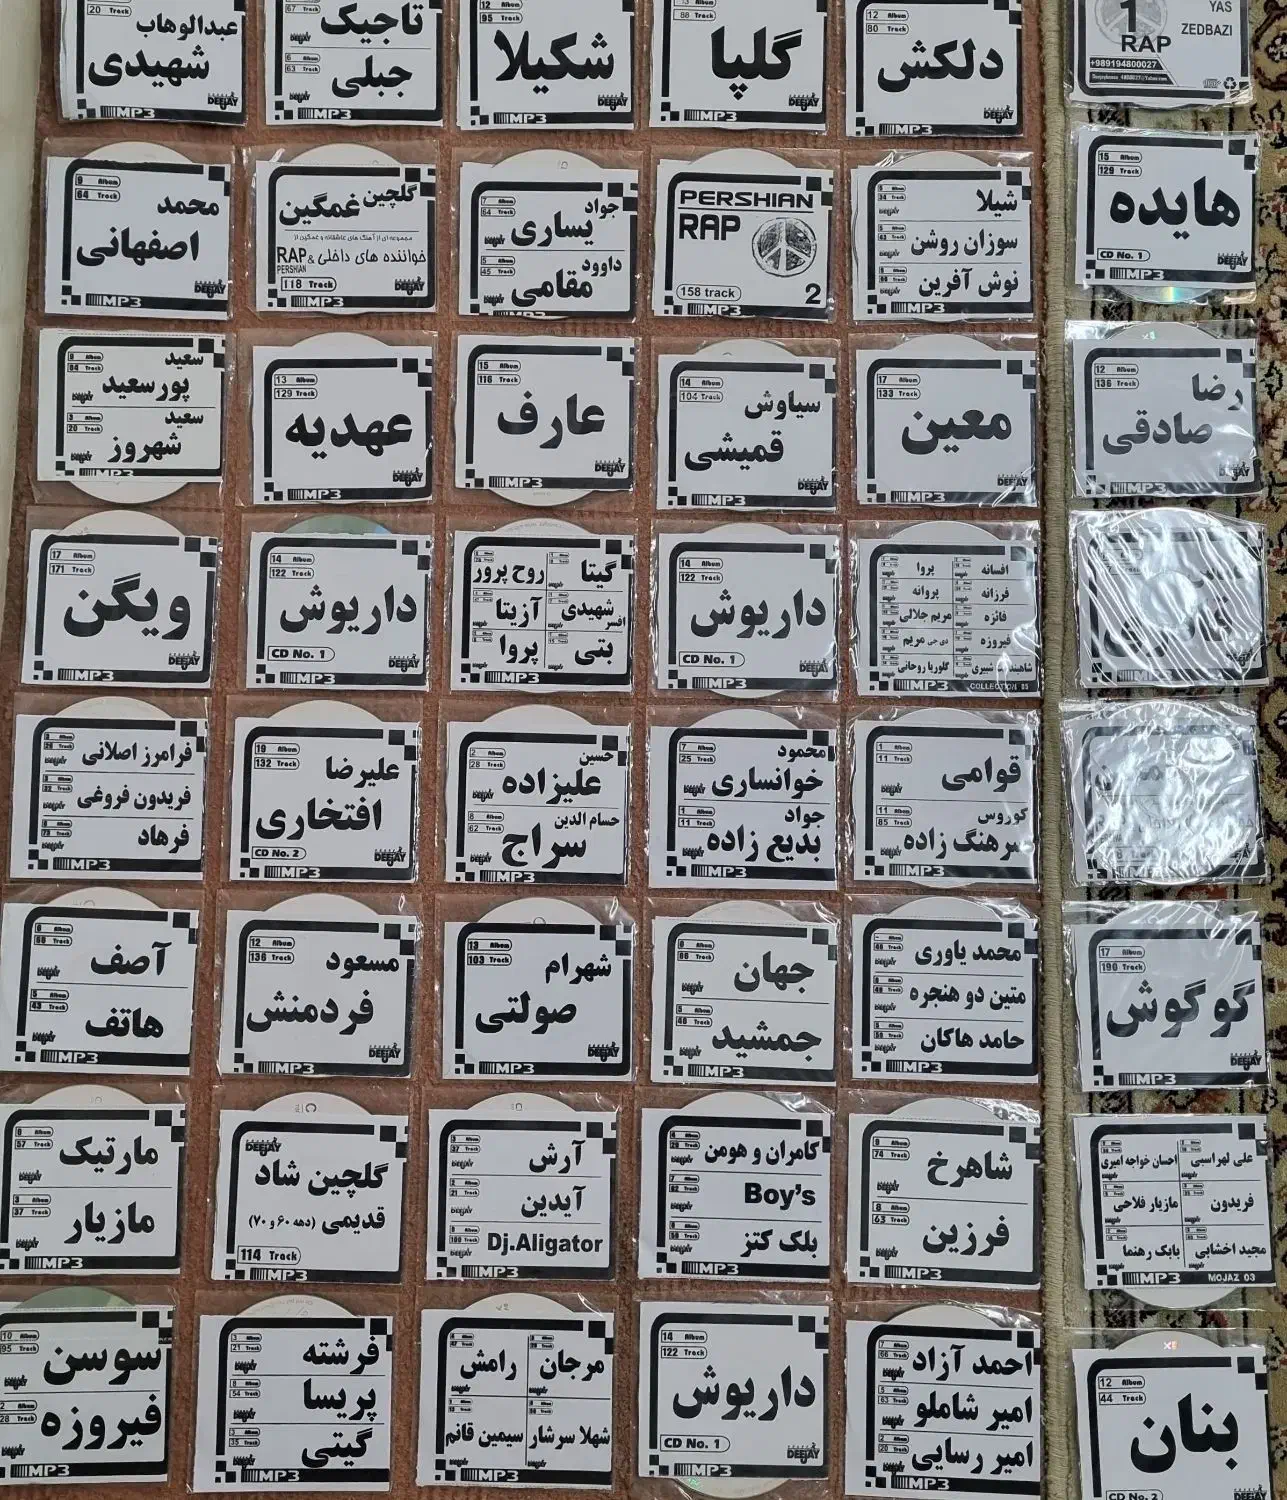 عبدالوهاب
شهیدی
DEEJAY
MP3
تاجیک
جبلی
DEEJAY
MP3
12 Album
95 Track
شکیلا
DEEJAY
MP3
گلپا
DEEJAY
MP3
12 Album
80 Track
دلکش
DEEJAY
MP3
YAS
ZEDBAZI
1
RAP
+989194800027
9 Album
64 Track
محمد
اصفهانی
DEEJAY
MP3
گلچین غمگین
مجموعه ای از آهنگ های عاشقانه و غمگین از
خواننده های داخلی & RAP
PERSHIAN
118 Track
DEEJAY
MP3
7 Album
64 Track
جواد
یساری
5 Album
45 Track
داوود
مقامی
MP3
PERSHIAN
RAP
158 track
2
MP3
شیلا
سوزان روشن
نوش آفرین
MP3
15 Album
129 Track
هایده
CD No. 1
DEEJAY
MP3
سعید
پورسعید
3 Album
20 Track
سعید
شهروز
MP3
13 Album
129 Track
عهدیه
DEEJAY
MP3
15 Album
116 Track
عارف
DEEJAY
MP3
14 Album
104 Track
سیاوش
قمیشی
DEEJAY
MP3
17 Album
133 Track
معین
DEEJAY
MP3
12 Album
136 Track
رضا
صادقی
DEEJAY
MP3
17 Album
171 Track
ویگن
DEEJAY
MP3
14 Album
122 Track
داریوش
CD No. 1
DEEJAY
MP3
گیتا
روح پرور
شهیدی
افسر
آزیتا
بتی
پروا
MP3
14 Album
122 Track
داریوش
CD No. 1
DEEJAY
MP3
افسانه
پروا
فرزانه
پروانه
فائزه
مریم جلالی
فیروزه
دی جی مریم
گلوریا روحانی
MP3
COLLECTION 05
فرامرز اصلانی
فریدون فروغی
فرهاد
MP3
19 Album
132 Track
علیرضا
افتخاری
CD No. 2
DEEJAY
MP3
2 Album
28 Track
حسین
علیزاده
8 Album
62 Track
حسام الدین
سراج
MP3
7 Album
25 Track
محمود
خوانساری
1 Album
11 Track
جواد
بدیع زاده
MP3
1 Album
11 Track
قوامی
11 Album
85 Track
کوروس
سرهنگ زاده
MP3
آصف
5 Album
43 Track
هاتف
MP3
12 Album
136 Track
مسعود
فردمنش
DEEJAY
MP3
13 Album
103 Track
شهرام
صولتی
DEEJAY
MP3
جهان
جمشید
MP3
محمد یاوری
متین دو هنجره
حامد هاکان
MP3
17 Album
190 Track
گوگوش
DEEJAY
MP3
57 Track
مارتیک
3 Album
37 Track
مازیار
MP3
DEEJAY
گلچین شاد
قدیمی (دهه ۶۰ و ۷۰)
114 Track
MP3
3 Album
37 Track
آرش
2 Album
21 Track
آیدین
Dj.Aligator
MP3
کامران و هومن
Boy's
بلک کتز
MP3
9 Album
74 Track
شاهرخ
8 Album
63 Track
فرزین
MP3
علی لهراسبی
احسان خواجه امیری
فریدون
مازیار فلاحی
مجید اخشابی
بابک رهنما
MP3
MOJAZ 03
10 Album
95 Track
سوسن
2 Album
28 Track
فیروزه
MP3
3 Album
21 Track
فرشته
8 Album
54 Track
پریسا
3 Album
35 Track
گیتی
MP3
مرجان
رامش
شهلا سرشار
سیمین قانم
MP3
14 Album
122 Track
داریوش
CD No. 1
DEEJAY
MP3
احمد آزاد
امیر شاملو
امیر رسایی
MP3
12 Album
44 Track
بنان
CD No. 2
DEEJAY